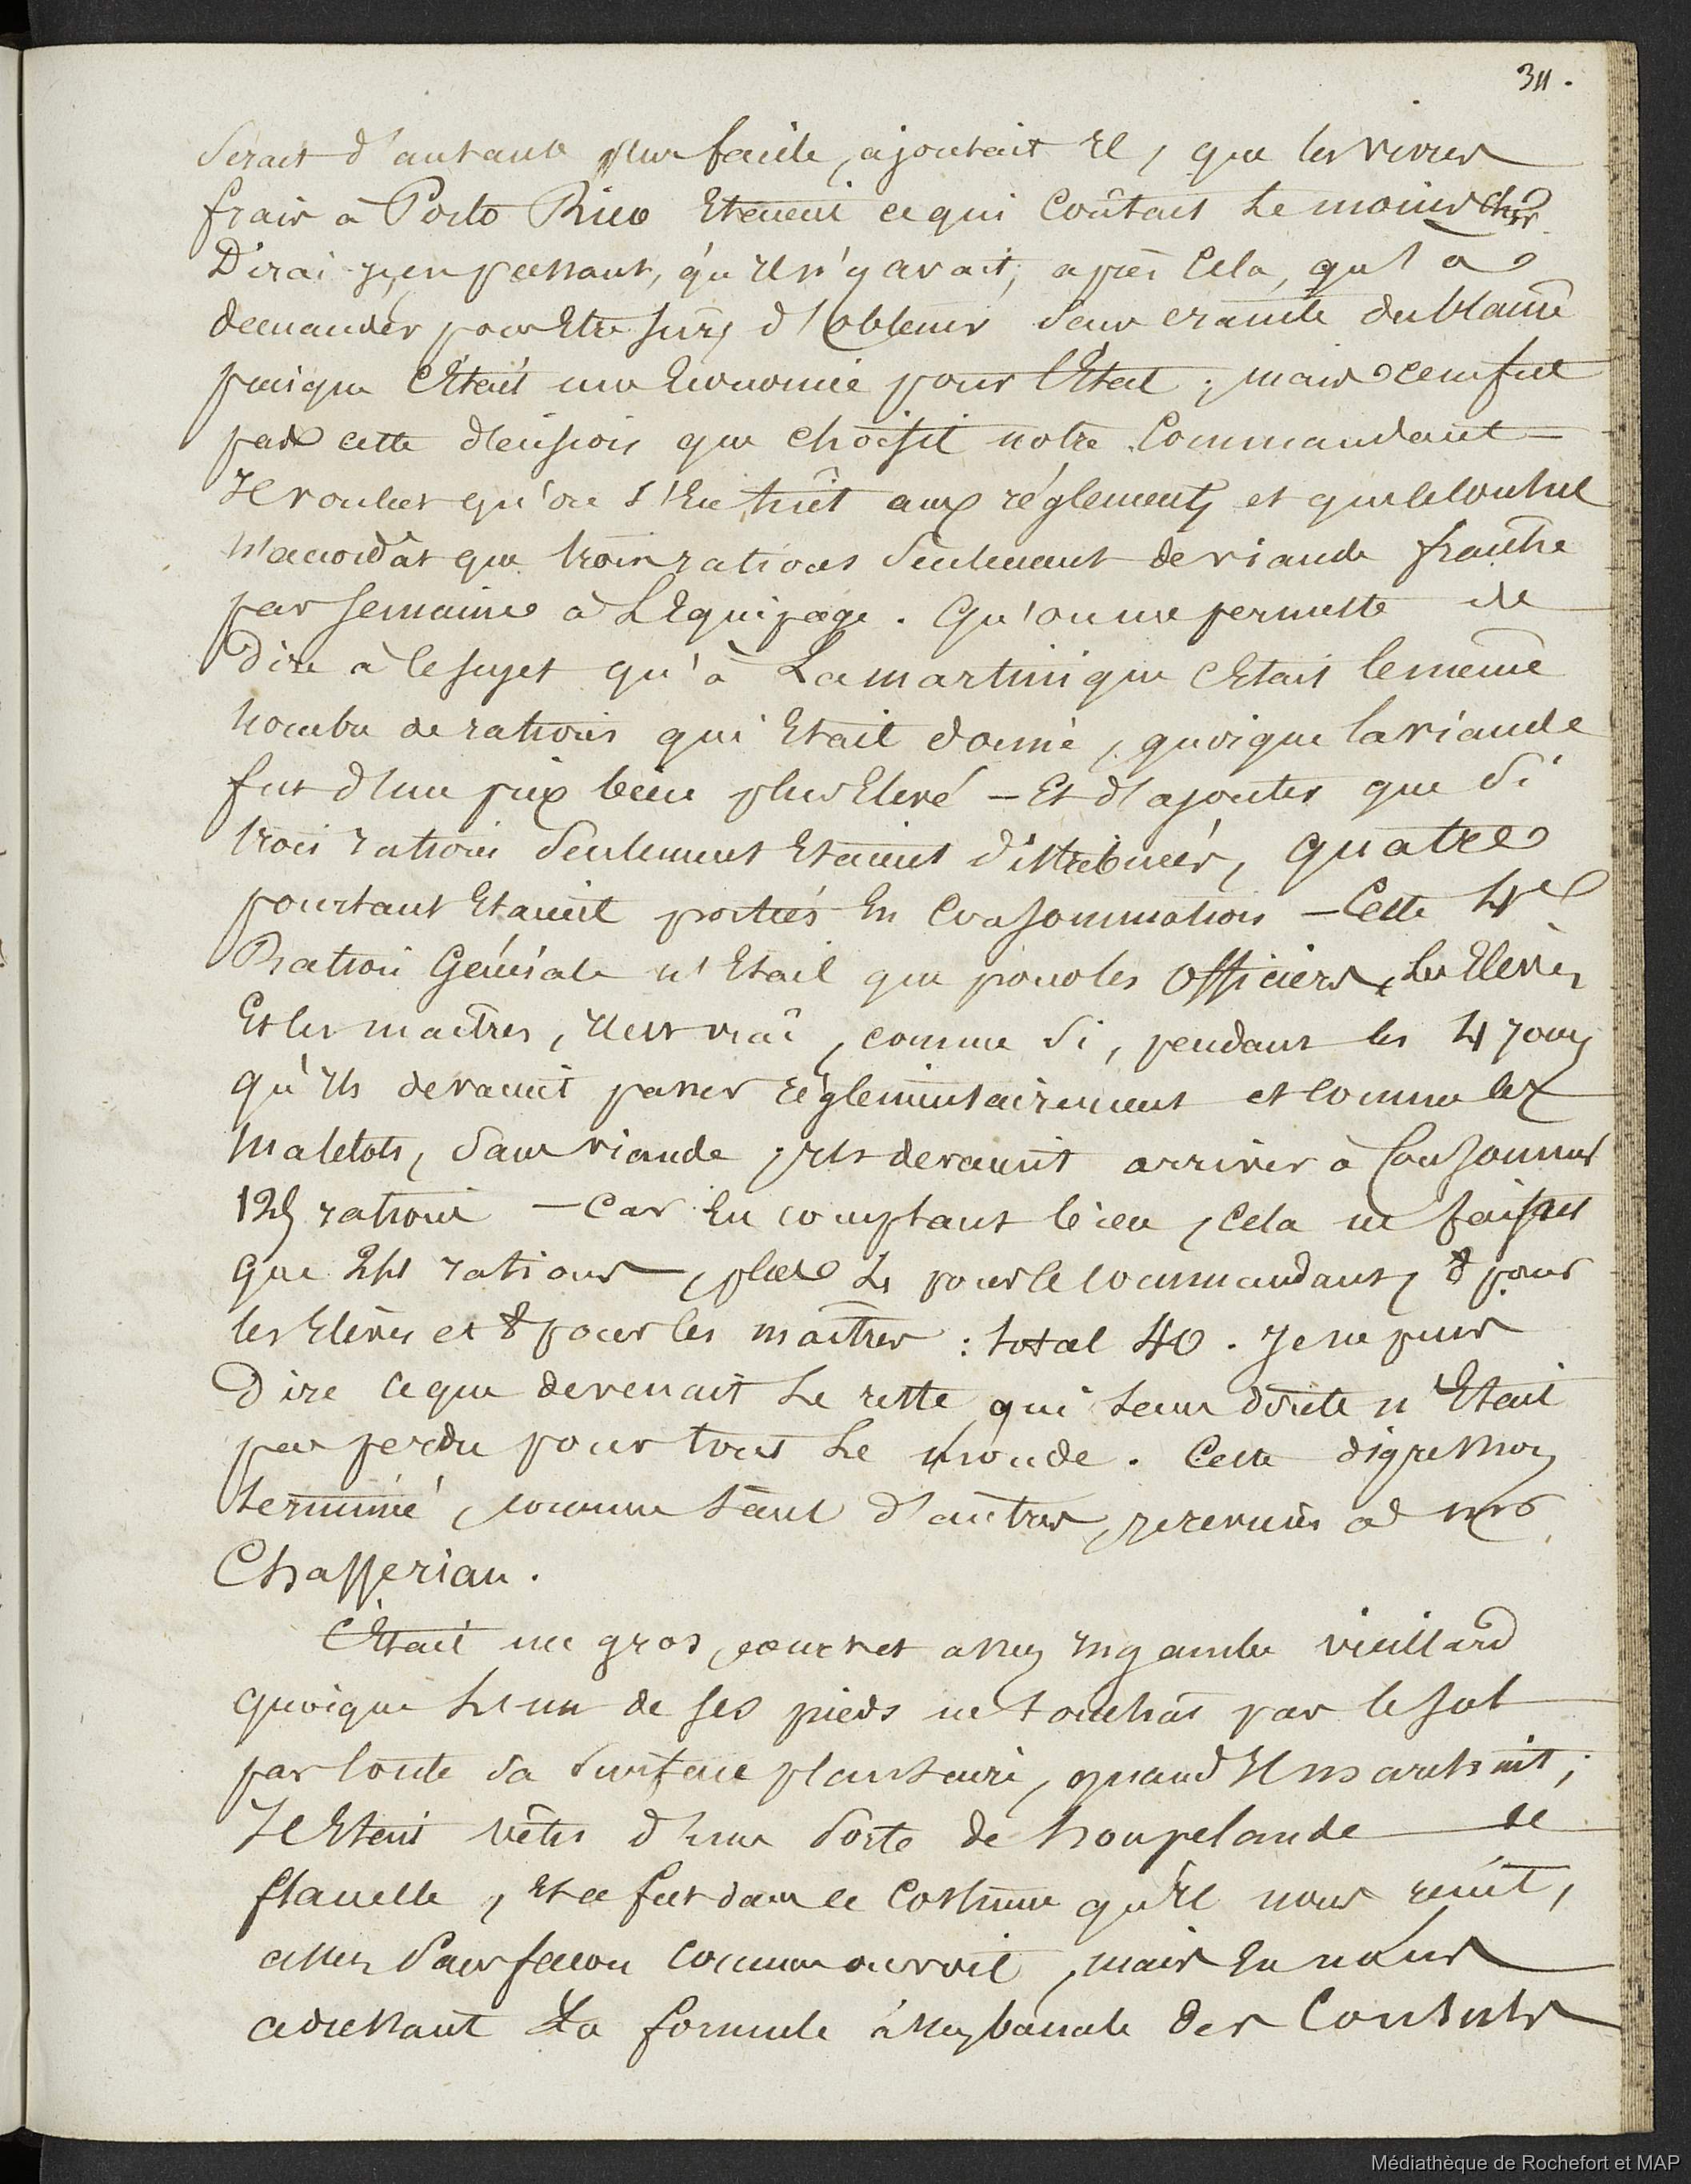 311.
serait d'autant plus facile, ajoutait il, que les vivres
frais à Porto Rico étaient ce qui coûtait le moins cher
Dirai-je, en passant, qu'il n'y avait, après cela, qu'à
demander pour être sûr, d'obtenir sans crainte du blame
puisque c'était une économie pour l'Etat ; mais ce ne fut
pas cette décision que choisit notre Commandant —
Il voulut qu'on s'en tint aux réglements et que le Consul
n'accordât que trois rations seulement de viande fraîche
par semaine à l'Equipage. Qu'on me permette de
Dire à ce sujet qu'à La martinique c'était le même
nombre de rations qui était donné, quoique la viande
fut d'un prix bien plus élevé — Et d'ajouter que si
trois rations seulement étaient distribuées, quatre
pourtant étaient portées en consommation — Cette 4e
Ration Générale n'était que pour les officiers, les Elèves
Et les maîtres, il est vrai, comme si, pendant les 4 jours
qu'ils devaient passer réglementairement et comme les
matelots, sans viande, ils devaient arriver à consommer
125 rations — Car en comptant bien, cela ne faisait
que 24 rations, plus 4 pour le commandant, 8 pour
les Elèves et 8 pour les maîtres : total 40. Je ne puis
Dire ce que devenait le reste qui sans doute n'était
pas perdu pour tout le monde. Cette digression
terminé, comme tant d'autres, je reviens à Mr
Chasseriau.
C'était un gros, court et assez ingambe vieillard
quoique l'un de ses pieds ne touchât pas le sol
par toute sa surface plantaire, quand il marchait ;
Il était vêtu d'une sorte de houpelande de
flanelle, et ce fut dans ce costume qu'il nous reçut,
assez sans façon comme on voit, mais en nous
adressant la formule assez banale des Consuls